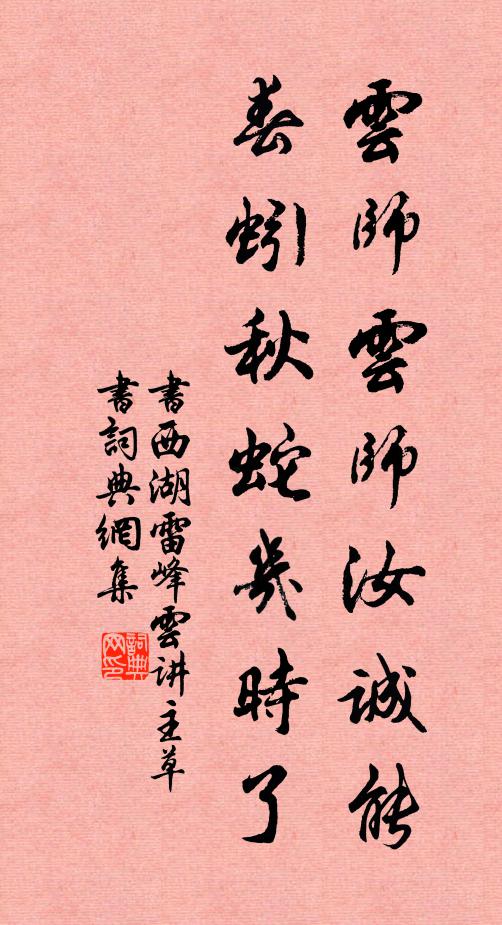 雲師雲師汝誠能
春蚓秋蛇幾時了
書西湖雷峰雲讲主草
書詞典網集
詞典网印